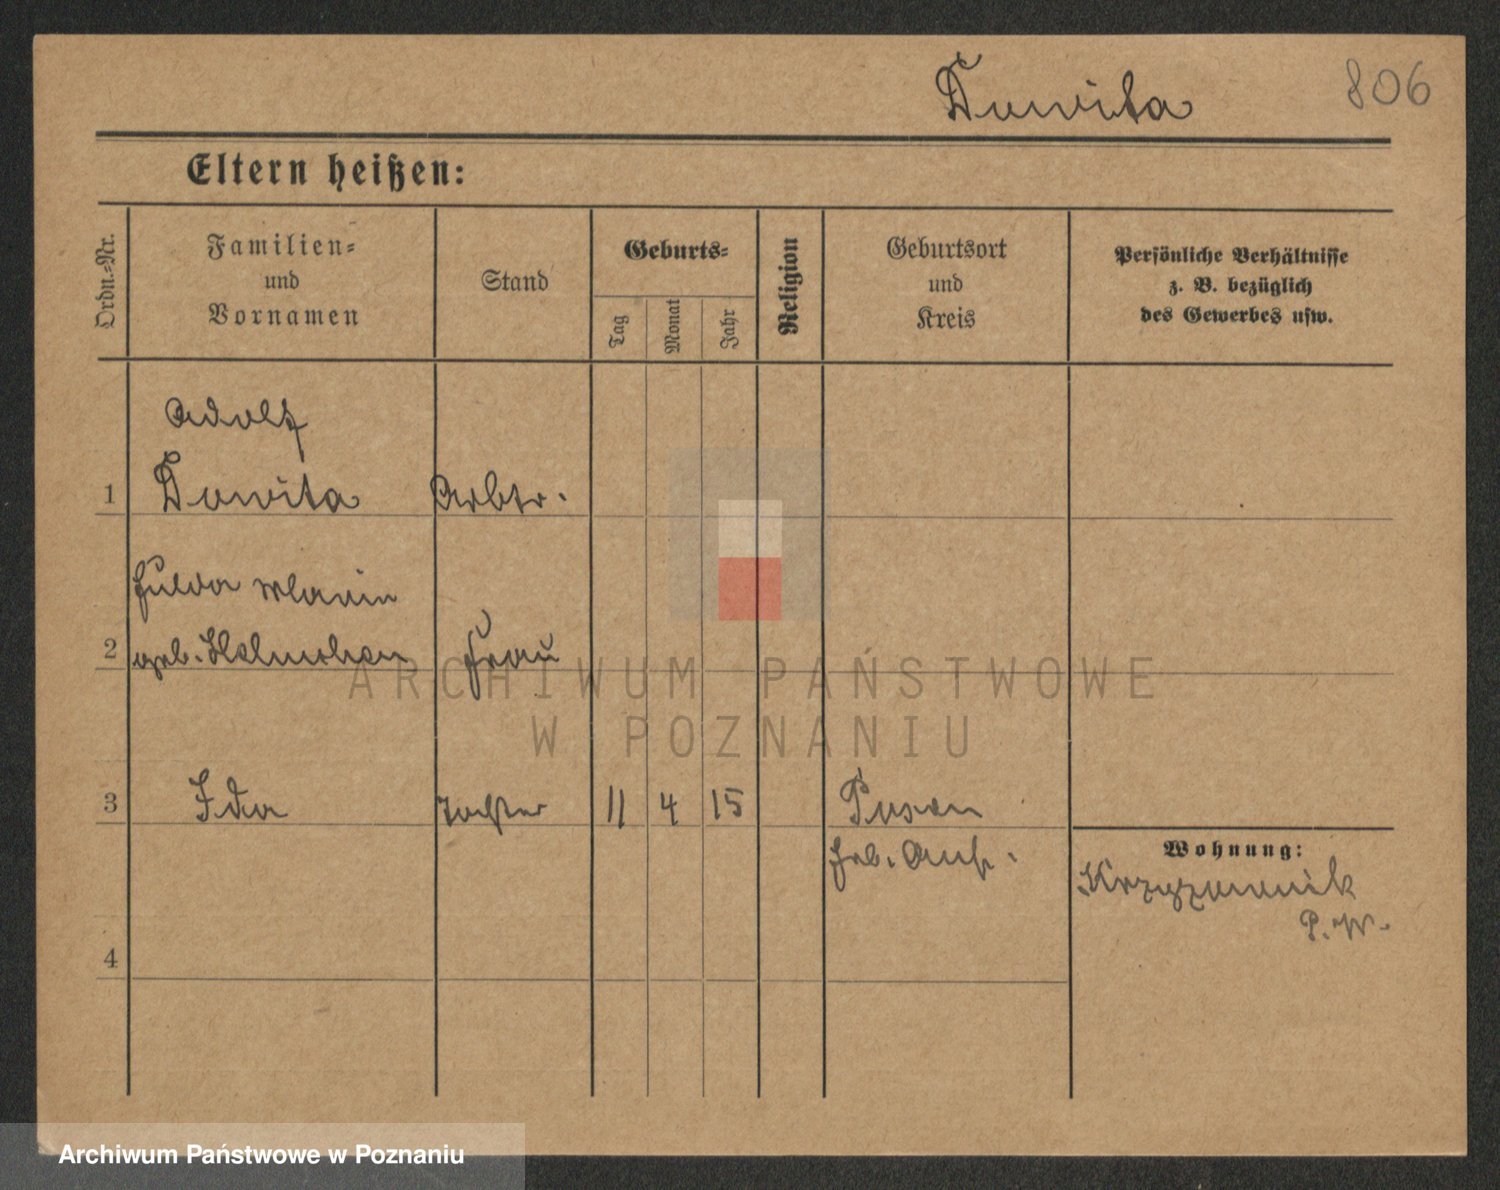 Duwita
806
Eltern heißen:
Ordn.=Nr.
Familien=
und
Vornamen
Stand
Geburts=
Tag
Monat
Jahr
Religion
Geburtsort
und
Kreis
Persönliche Verhältnisse
z. B. bezüglich
des Gewerbes usw.
Adolf
1 Duwita Arbtr.
Hulda
2 geb. Frau
3 Ida Tochter 11 4 15 Posen
Wohnung:
P. W.
4
ARCHIWUM PAŃSTWOWE
W POZNANIU
Archiwum Państwowe w Poznaniu